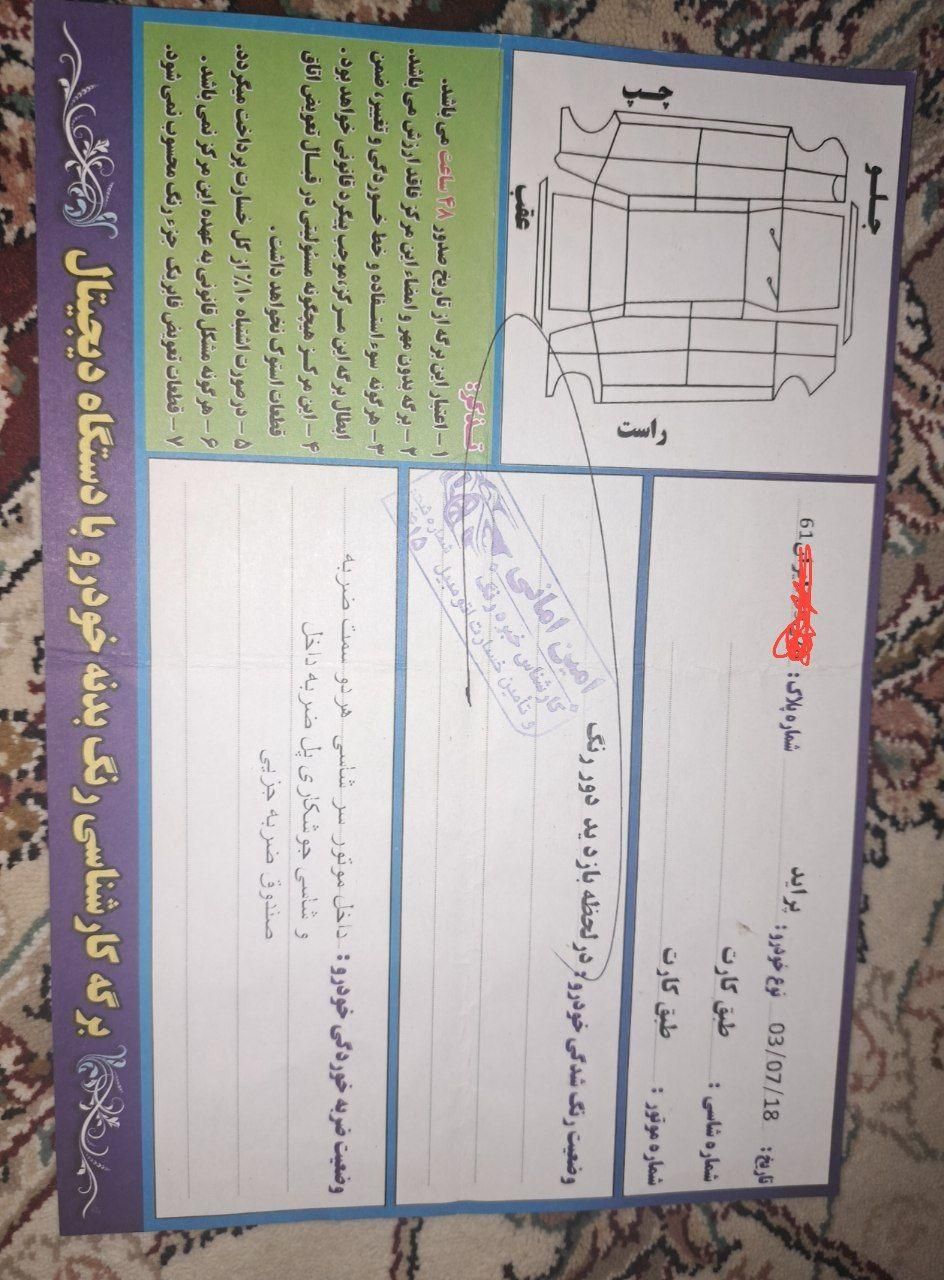 برگه کارشناسی رنگ بدنه خودرو با دستگاه دیجیتال
تاریخ: 03/07/18 نوع خودرو: پراید شماره پلاک: 61
شماره شاسی: طبق کارت
شماره موتور: طبق کارت
وضعیت رنگ شدگی خودرو: در لحظه بازدید دور رنگ
امین امانی
کارشناس خبره رنگ
و تأمین خسارت اتومبیل
وضعیت ضربه خوردگی خودرو: داخل موتور سر شاسی هر دو سمت ضربه
و شاسی جوشکاری پل ضربه داخل
صندوق ضربه جزیی
جلو
چپ
راست
عقب
تذکر:
۱- اعتبار این برگه از تاریخ صدور ۴۸ ساعت می باشد.
۲- برگه بدون مهر و امضاء این مرکز فاقد ارزش می باشد.
۳- هرگونه سوء استفاده و خط خوردگی و تغییر، ضمن
ابطال برگه این مرکز، موجب پیگرد قانونی خواهد بود.
۴- این مرکز هیچگونه مسئولیتی در قبال تعویض اتاق
قطعات استوک نخواهد داشت.
۵- در صورت اشتباه ۱۰٪ از کل خسارت پرداخت میگردد.
۶- هرگونه مشکل قانونی به عهده این مرکز نمی باشد.
۷- قطعات تعویض فابریک جزء رنگ محسوب نمی شود.